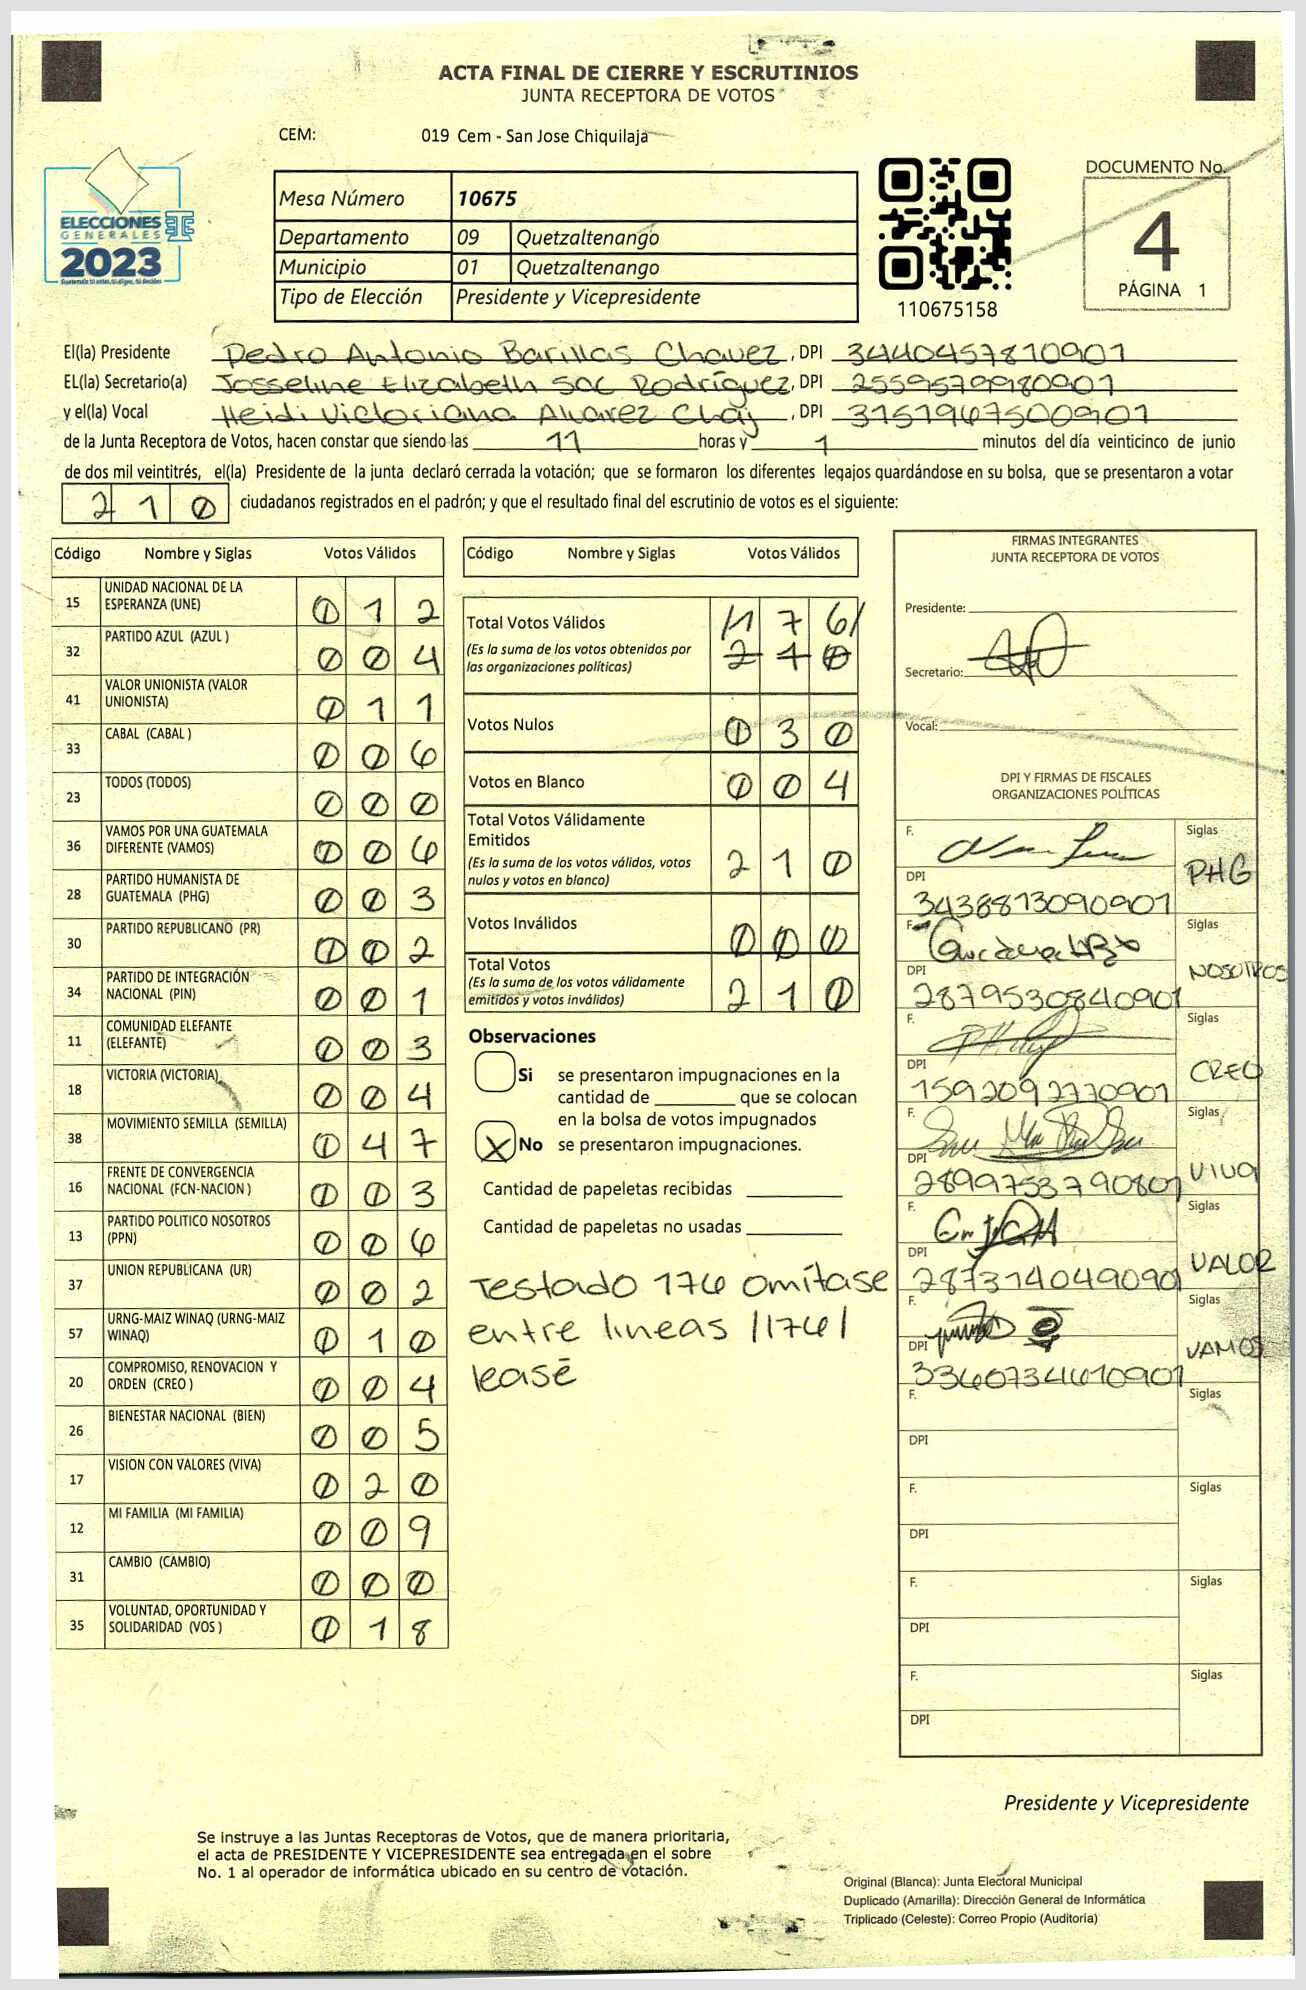 ACTA FINAL DE CIERRE Y ESCRUTINIOS
JUNTA RECEPTORA DE VOTOS
CEM: 019 Cem - San Jose Chiquilaja
ELECCIONES
GENERALES
2023
Mesa Número 10675
Departamento 09 Quetzaltenango
Municipio 01 Quetzaltenango
Tipo de Elección Presidente y Vicepresidente
110675158
DOCUMENTO No.
4
PÁGINA 1
El(la) Presidente Pedro Antonio Barillas Chavez, DPI 3440457810901
EL(la) Secretario(a) Josseline Elizabeth Soc Rodríguez, DPI 2559579980901
y el(la) Vocal Heidi Victoriana Alvarez Chaj, DPI 3151967500901
de la Junta Receptora de Votos, hacen constar que siendo las 11 horas y 1 minutos del día veinticinco de junio
de dos mil veintitrés, el(la) Presidente de la junta declaró cerrada la votación; que se formaron los diferentes legajos quardándose en su bolsa, que se presentaron a votar
210 ciudadanos registrados en el padrón; y que el resultado final del escrutinio de votos es el siguiente:
Código Nombre y Siglas Votos Válidos
15 UNIDAD NACIONAL DE LA ESPERANZA (UNE) 012
32 PARTIDO AZUL (AZUL ) 004
41 VALOR UNIONISTA (VALOR UNIONISTA) 011
33 CABAL (CABAL ) 006
23 TODOS (TODOS) 000
36 VAMOS POR UNA GUATEMALA DIFERENTE (VAMOS) 006
28 PARTIDO HUMANISTA DE GUATEMALA (PHG) 003
30 PARTIDO REPUBLICANO (PR) 002
34 PARTIDO DE INTEGRACIÓN NACIONAL (PIN) 001
11 COMUNIDAD ELEFANTE (ELEFANTE) 003
18 VICTORIA (VICTORIA) 004
38 MOVIMIENTO SEMILLA (SEMILLA) 047
16 FRENTE DE CONVERGENCIA NACIONAL (FCN-NACION ) 003
13 PARTIDO POLITICO NOSOTROS (PPN) 006
37 UNION REPUBLICANA (UR) 002
57 URNG-MAIZ WINAQ (URNG-MAIZ WINAQ) 010
20 COMPROMISO, RENOVACION Y ORDEN (CREO ) 004
26 BIENESTAR NACIONAL (BIEN) 005
17 VISION CON VALORES (VIVA) 020
12 MI FAMILIA (MI FAMILIA) 009
31 CAMBIO (CAMBIO) 000
35 VOLUNTAD, OPORTUNIDAD Y SOLIDARIDAD (VOS ) 018
Código Nombre y Siglas Votos Válidos
Total Votos Válidos /176/
(Es la suma de los votos obtenidos por las organizaciones políticas) 210
Votos Nulos 030
Votos en Blanco 004
Total Votos Válidamente Emitidos
(Es la suma de los votos válidos, votos nulos y votos en blanco) 210
Votos Inválidos 000
Total Votos
(Es la suma de los votos válidamente emitidos y votos inválidos) 210
Observaciones
Si se presentaron impugnaciones en la
cantidad de ________ que se colocan
en la bolsa de votos impugnados
X No se presentaron impugnaciones.
Cantidad de papeletas recibidas
Cantidad de papeletas no usadas
Testado 176 omítase
entre lineas /176/
lease
FIRMAS INTEGRANTES
JUNTA RECEPTORA DE VOTOS
Presidente:
Secretario:
Vocal:
DPI Y FIRMAS DE FISCALES
ORGANIZACIONES POLÍTICAS
F. Siglas
PHG
DPI 3438813090901
F. Siglas
NOSOTROS
DPI 2879530840901
F. Siglas
CREO
DPI 1592092770901
F. Siglas
VIVA
DPI 2899753790801
F. Siglas
VALOR
DPI 2873140490901
F. Siglas
VAMOS
DPI 3360734610901
F. Siglas
DPI
F. Siglas
DPI
F. Siglas
DPI
F. Siglas
DPI
Presidente y Vicepresidente
Se instruye a las Juntas Receptoras de Votos, que de manera prioritaria,
el acta de PRESIDENTE Y VICEPRESIDENTE sea entregada en el sobre
No. 1 al operador de informática ubicado en su centro de votación.
Original (Blanca): Junta Electoral Municipal
Duplicado (Amarilla): Dirección General de Informática
Triplicado (Celeste): Correo Propio (Auditoria)